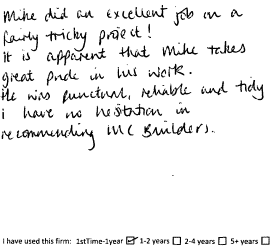 Mike did an excellent job on a
fairly tricky project!
It is apparent that Mike takes
great pride in his work.
He was punctual, reliable and tidy
i have no hesitation in
recommending MC Builders.
I have used this firm: 1stTime-1year ☑ 1-2 years ☐ 2-4 years ☐ 5+ years ☐